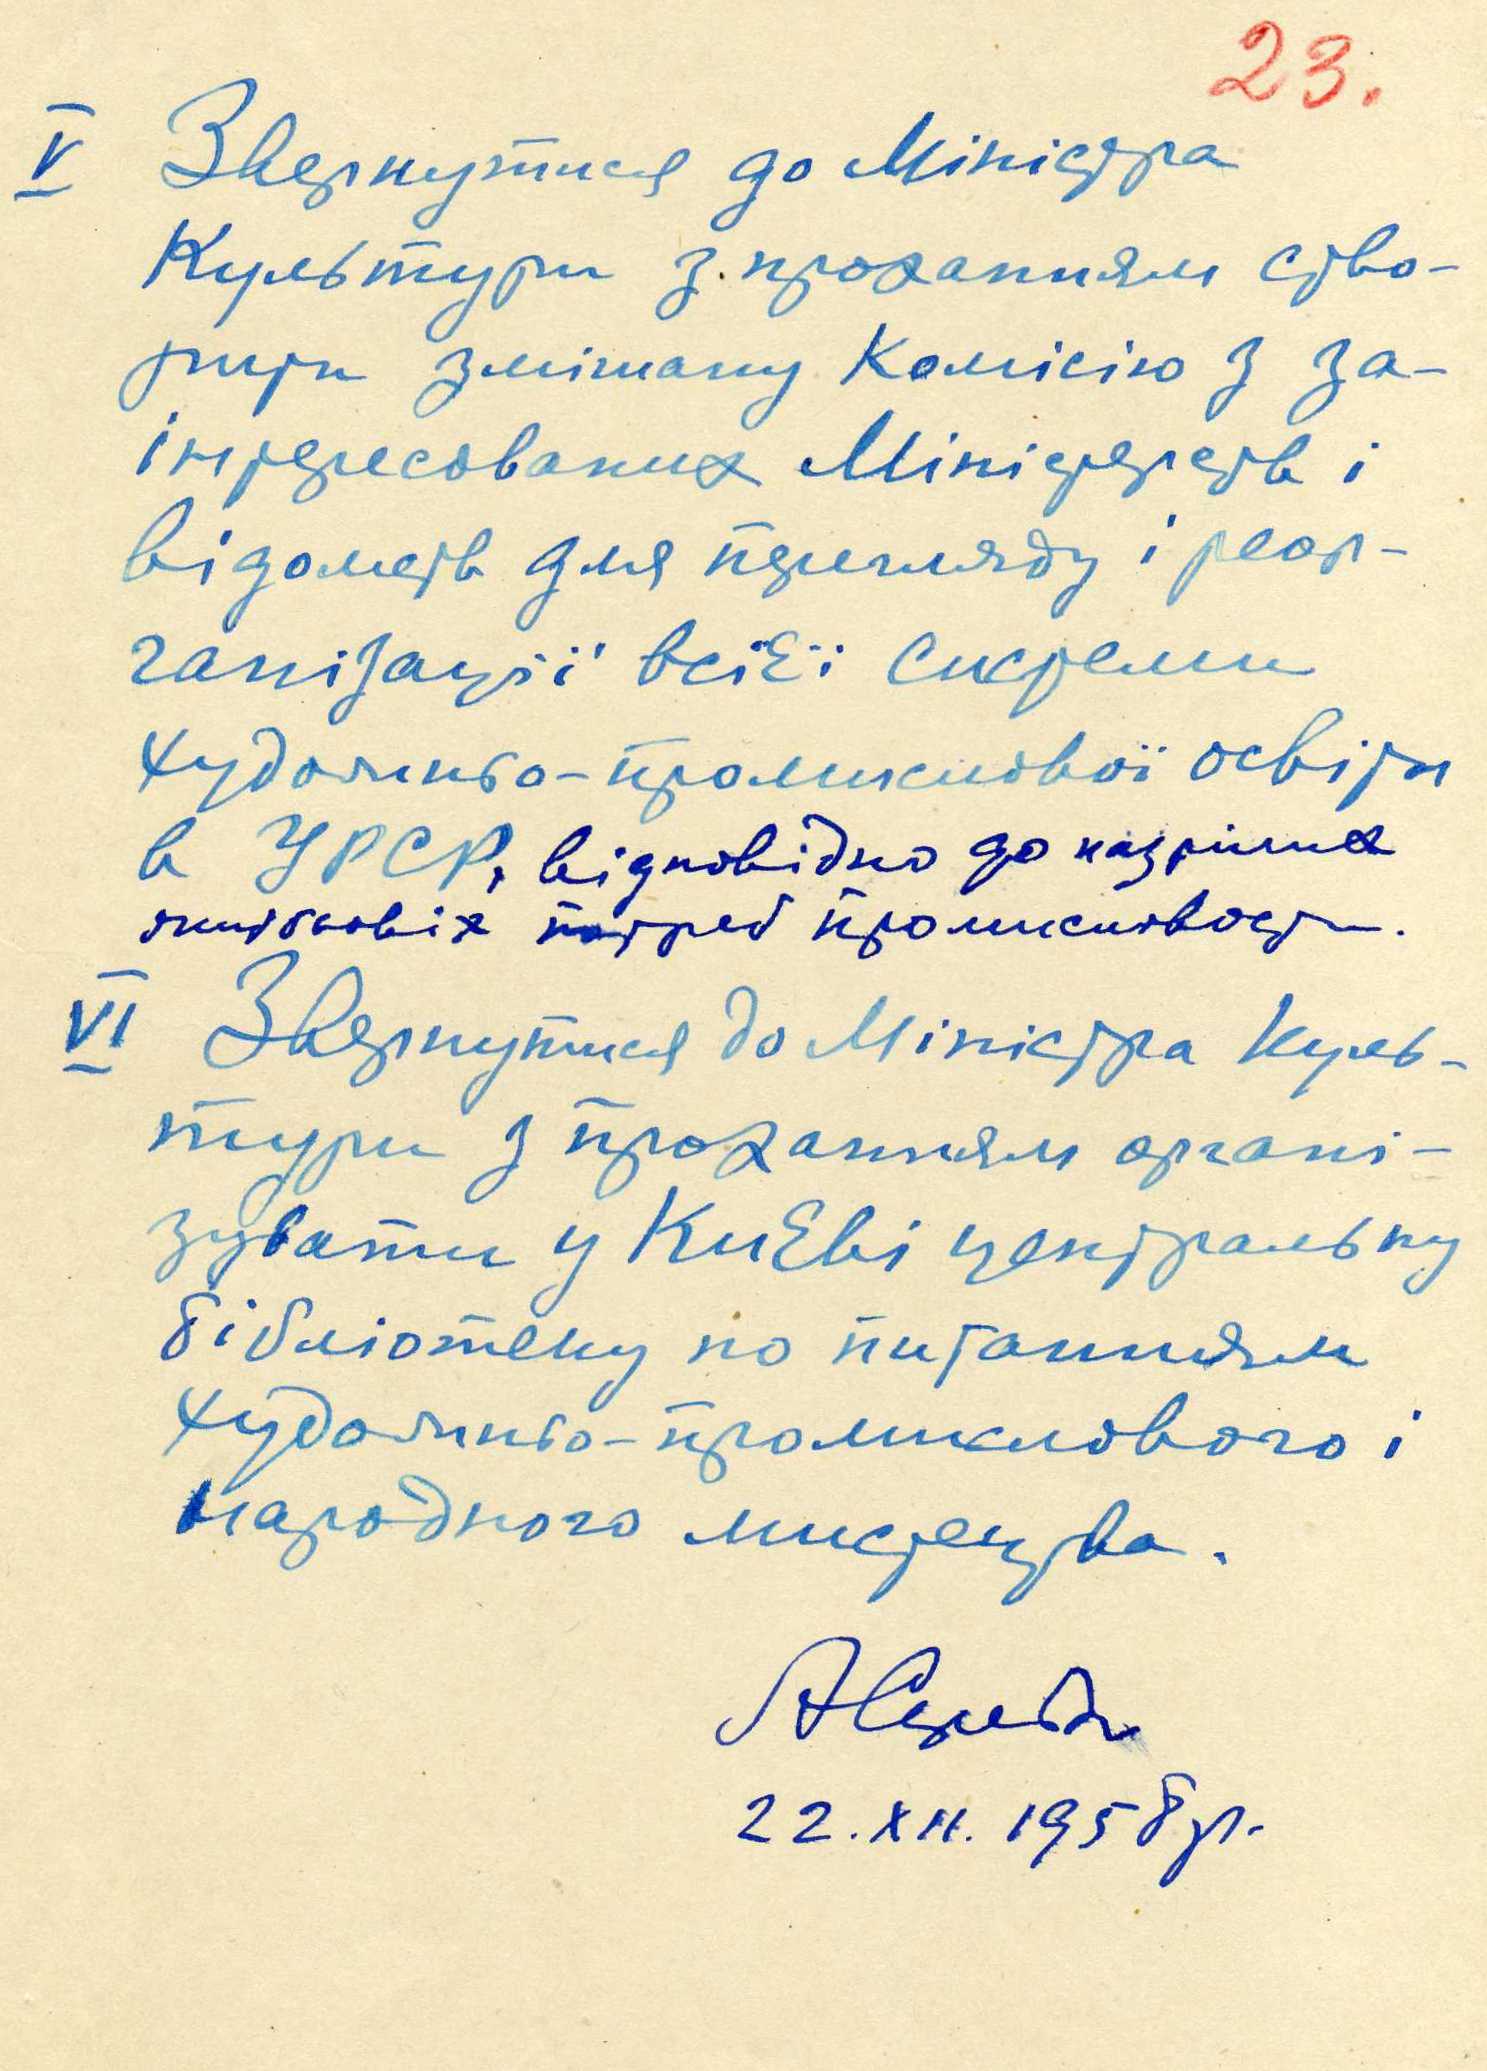 23.
V Звернутися до Міністра
Культури з проханням ство-
рити змішану Комісію з за-
інтересованих Міністерств і
відомств для перегляду і реор-
ганізації всієї системи
художньо-промислової освіти
в УРСР, відповідно до назрілих
потреб промисловости.
VI Звернутися до Міністра Куль-
тури з проханням органі-
зувати у Києві центральну
бібліотеку по питанням
художньо-промислового і
народного мистецтва.
АСереда
22.XII.1958 р.